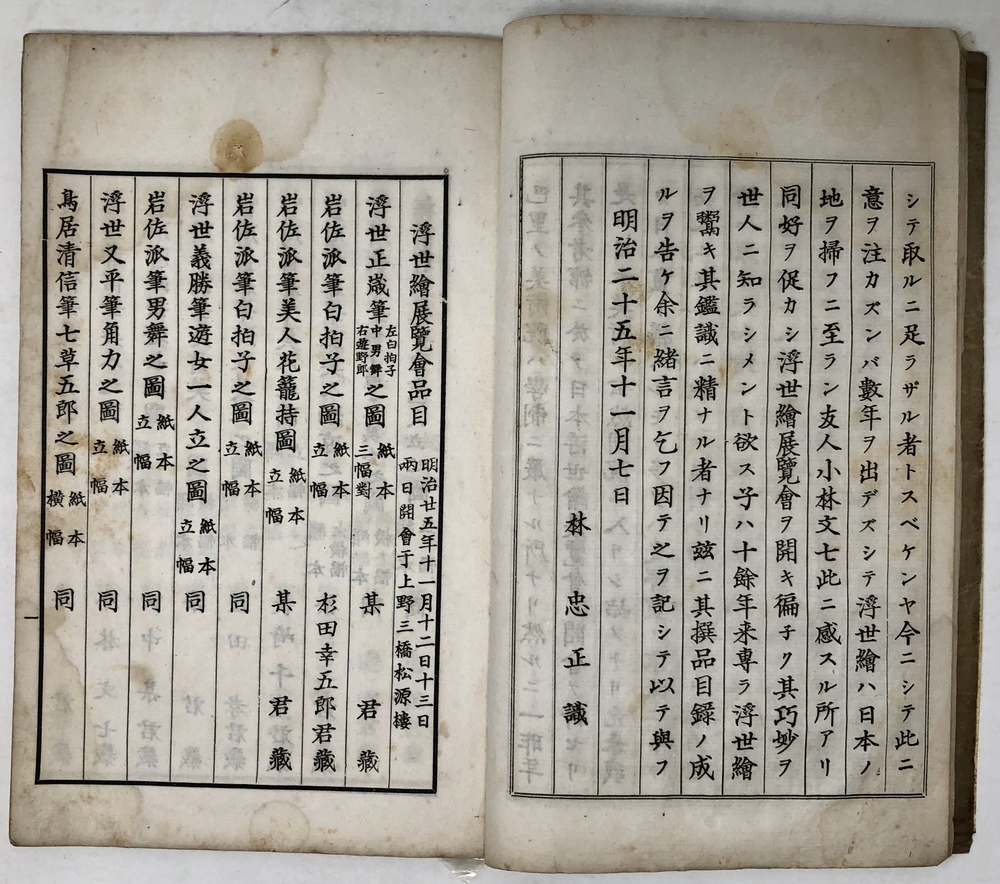 シテ取ルニ足ラザル者トスベケンヤ今ニシテ此ニ
意ヲ注カズンバ數年ヲ出デズシテ浮世繪ハ日本ノ
地ヲ掃フニ至ラン友人小林文七此ニ感スル所アリ
同好ヲ促カシ浮世繪展覽會ヲ開キ徧子ク其巧妙ヲ
世人ニ知ラシメント欲ス子ハ十餘年来専ラ浮世繪
ヲ鬻キ其鑑識ニ精ナル者ナリ茲ニ其撰品目録ノ成
ルヲ告ケ余ニ緒言ヲ乞フ因テ之ヲ記シテ以テ與フ
明治二十五年十一月七日
林忠正識
浮世繪展覽會品目
明治廿五年十一月十二日十三日
兩日開會于上野三橋松源樓
浮世正歳筆左白拍子中男舞右遊野郎之圖 紙本三幅對 某君藏
岩佐派筆白拍子之圖 紙本立幅 杉田幸五郎君藏
岩佐派筆美人花籠持圖 紙本立幅 某君藏
岩佐派筆白拍子之圖 紙本立幅 同
浮世義勝筆遊女一人立之圖 紙本立幅 同
岩佐派筆男舞之圖 紙本立幅 同
浮世又平筆角力之圖 紙本立幅 同
鳥居清信筆七草五郎之圖 紙本橫幅 同
一